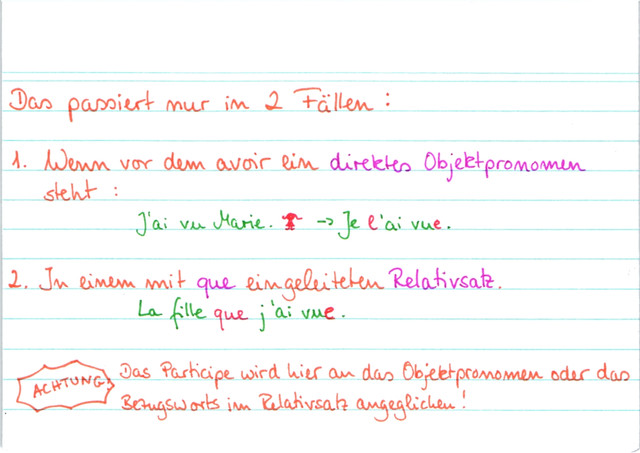 Das passiert nur in 2 Fällen :
1. Wenn vor dem avoir ein direktes Objektpronomen
steht :
J'ai vu Marie. → Je l'ai vue.
2. In einem mit que eingeleiteten Relativsatz.
La fille que j'ai vue.
ACHTUNG! Das Participe wird hier an das Objektpronomen oder das
Bezugsworts im Relativsatz angeglichen!